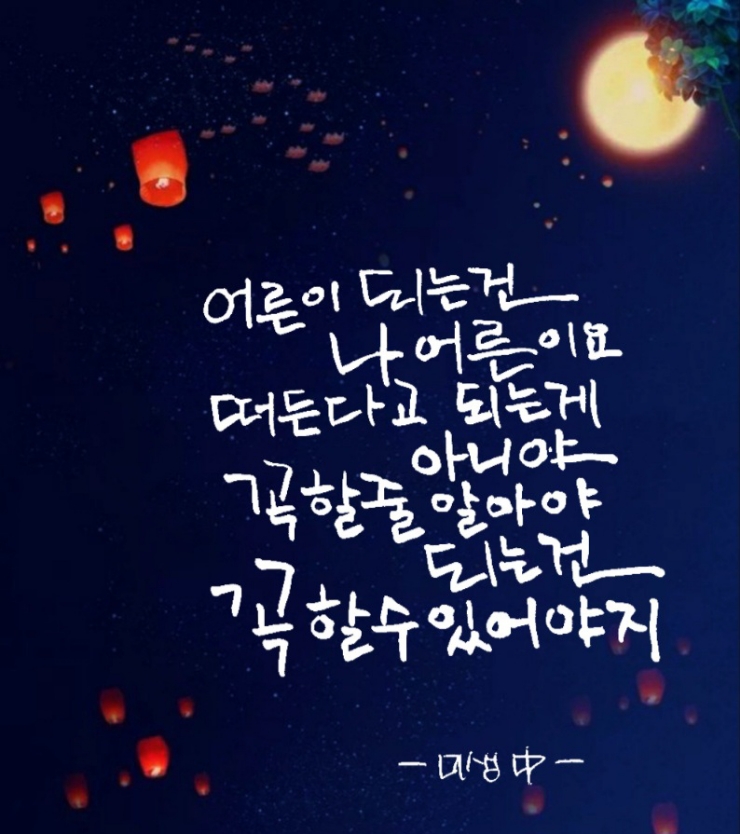 어른이 되는건
나 어른이요
떠든다고 되는게
아니야
꼭 할줄 알아야
되는건
꼭 할수 있어야지
- 미생 中 -